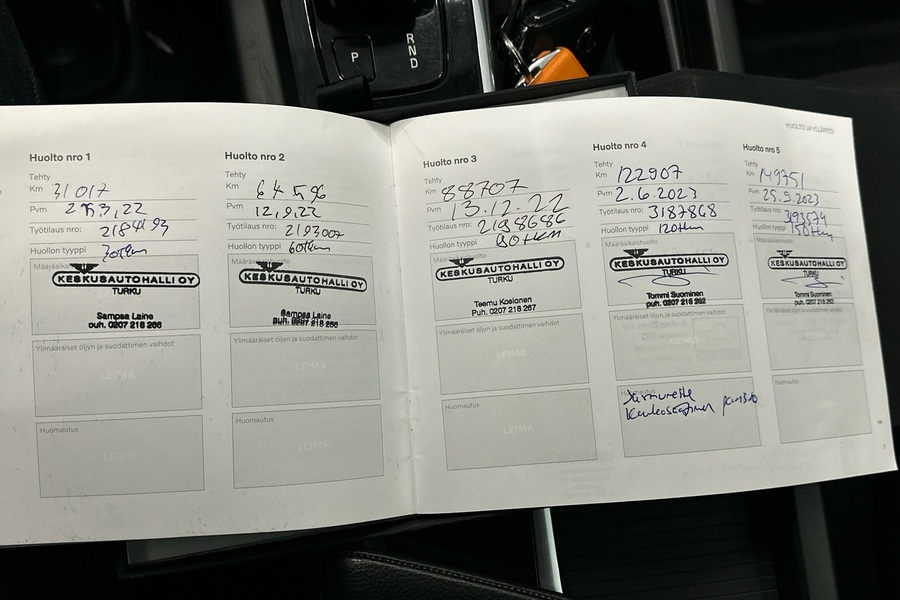 P
R
N
D
HUOLTO JA YLLÄPITO
Huolto nro 1
Tehty
Km 31017
Pvm
Työtilaus nro:
Huollon tyyppi 30tkm
Määräaikaishuolto
KESKUSAUTOHALLI OY
TURKU
Sampsa Laine
puh. 0207 218 266
Ylimääräiset öljyn ja suodattimen vaihdot
LEIMA
Huomautus
LEIMA
Huolto nro 2
Tehty
Km
Pvm 12,9,22
Työtilaus nro: 2193007
Huollon tyyppi 60tkm
KESKUSAUTOHALLI OY
TURKU
Sampsa Laine
puh. 0207 218 266
Ylimääräiset öljyn ja suodattimen vaihdot
LEIMA
Huomautus
LEIMA
Huolto nro 3
Tehty
Km 88707
Pvm 13.12.22
Työtilaus nro: 2198686
Huollon tyyppi 90tkm
KESKUSAUTOHALLI OY
TURKU
Teemu Kosionen
Puh. 0207 218 267
Ylimääräiset öljyn ja suodattimen vaihdot
LEIMA
Huomautus
LEIMA
Huolto nro 4
Tehty
Km 122907
Pvm 2.6.2023
Työtilaus nro: 3187868
Huollon tyyppi 120tkm
Määräaikaishuolto
KESKUSAUTOHALLI OY
TURKU
Tommi Suominen
puh. 0207 218 262
Ylimääräiset öljyn ja suodattimen vaihdot
Huomautus
Huolto nro 5
Tehty
Km 149751
Pvm 25.9.2023
Työtilaus nro: 3193574
Huollon tyyppi 150tkm
KESKUSAUTOHALLI OY
TURKU
Tommi Suominen
puh. 0207 218 262
Ylimääräiset öljyn ja suodattimen vaihdot
LEIMA
Huomautus
LEIMA